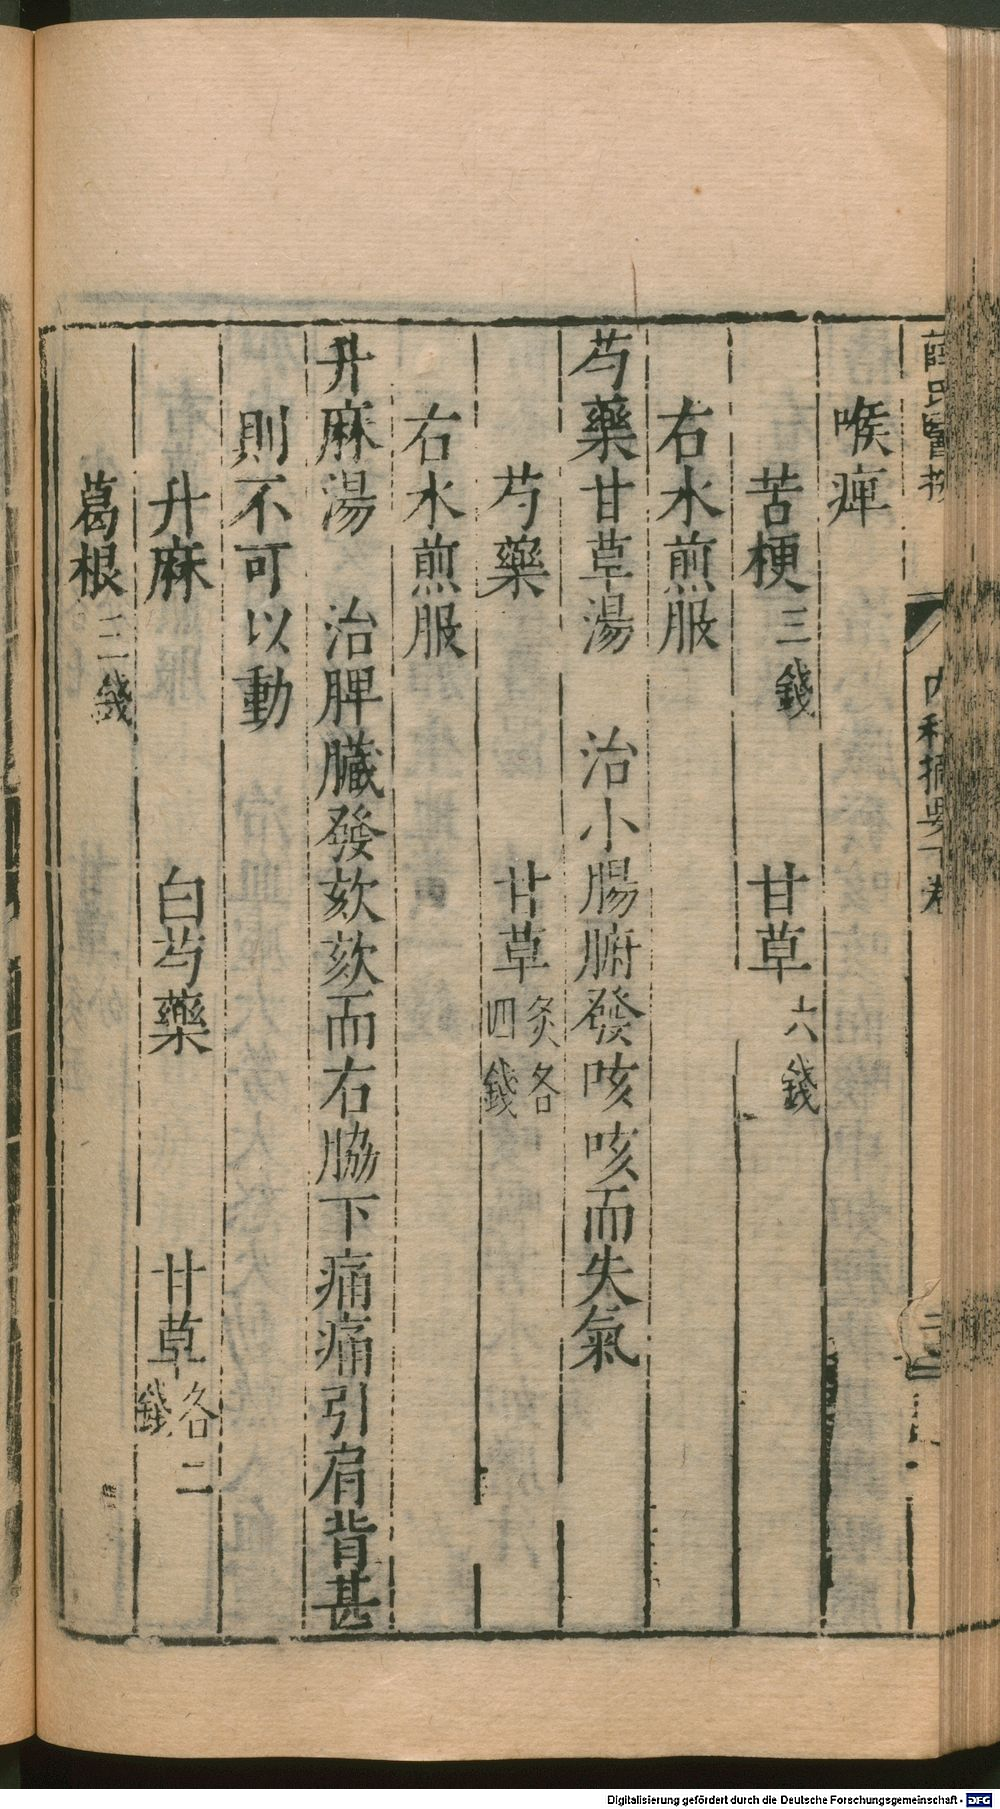 薛氏醫按 內科摘要下卷
喉痺
苦梗三錢 甘草六錢
右水煎服
芍藥甘草湯 治小腸腑發咳咳而失氣
芍藥 甘草炙各四錢
右水煎服
升麻湯 治脾臟發欬欬而右脇下痛痛引肩背甚
則不可以動
升麻 白芍藥 甘草各二錢
葛根三錢
Digitalisierung gefördert durch die Deutsche Forschungsgemeinschaft - DFG